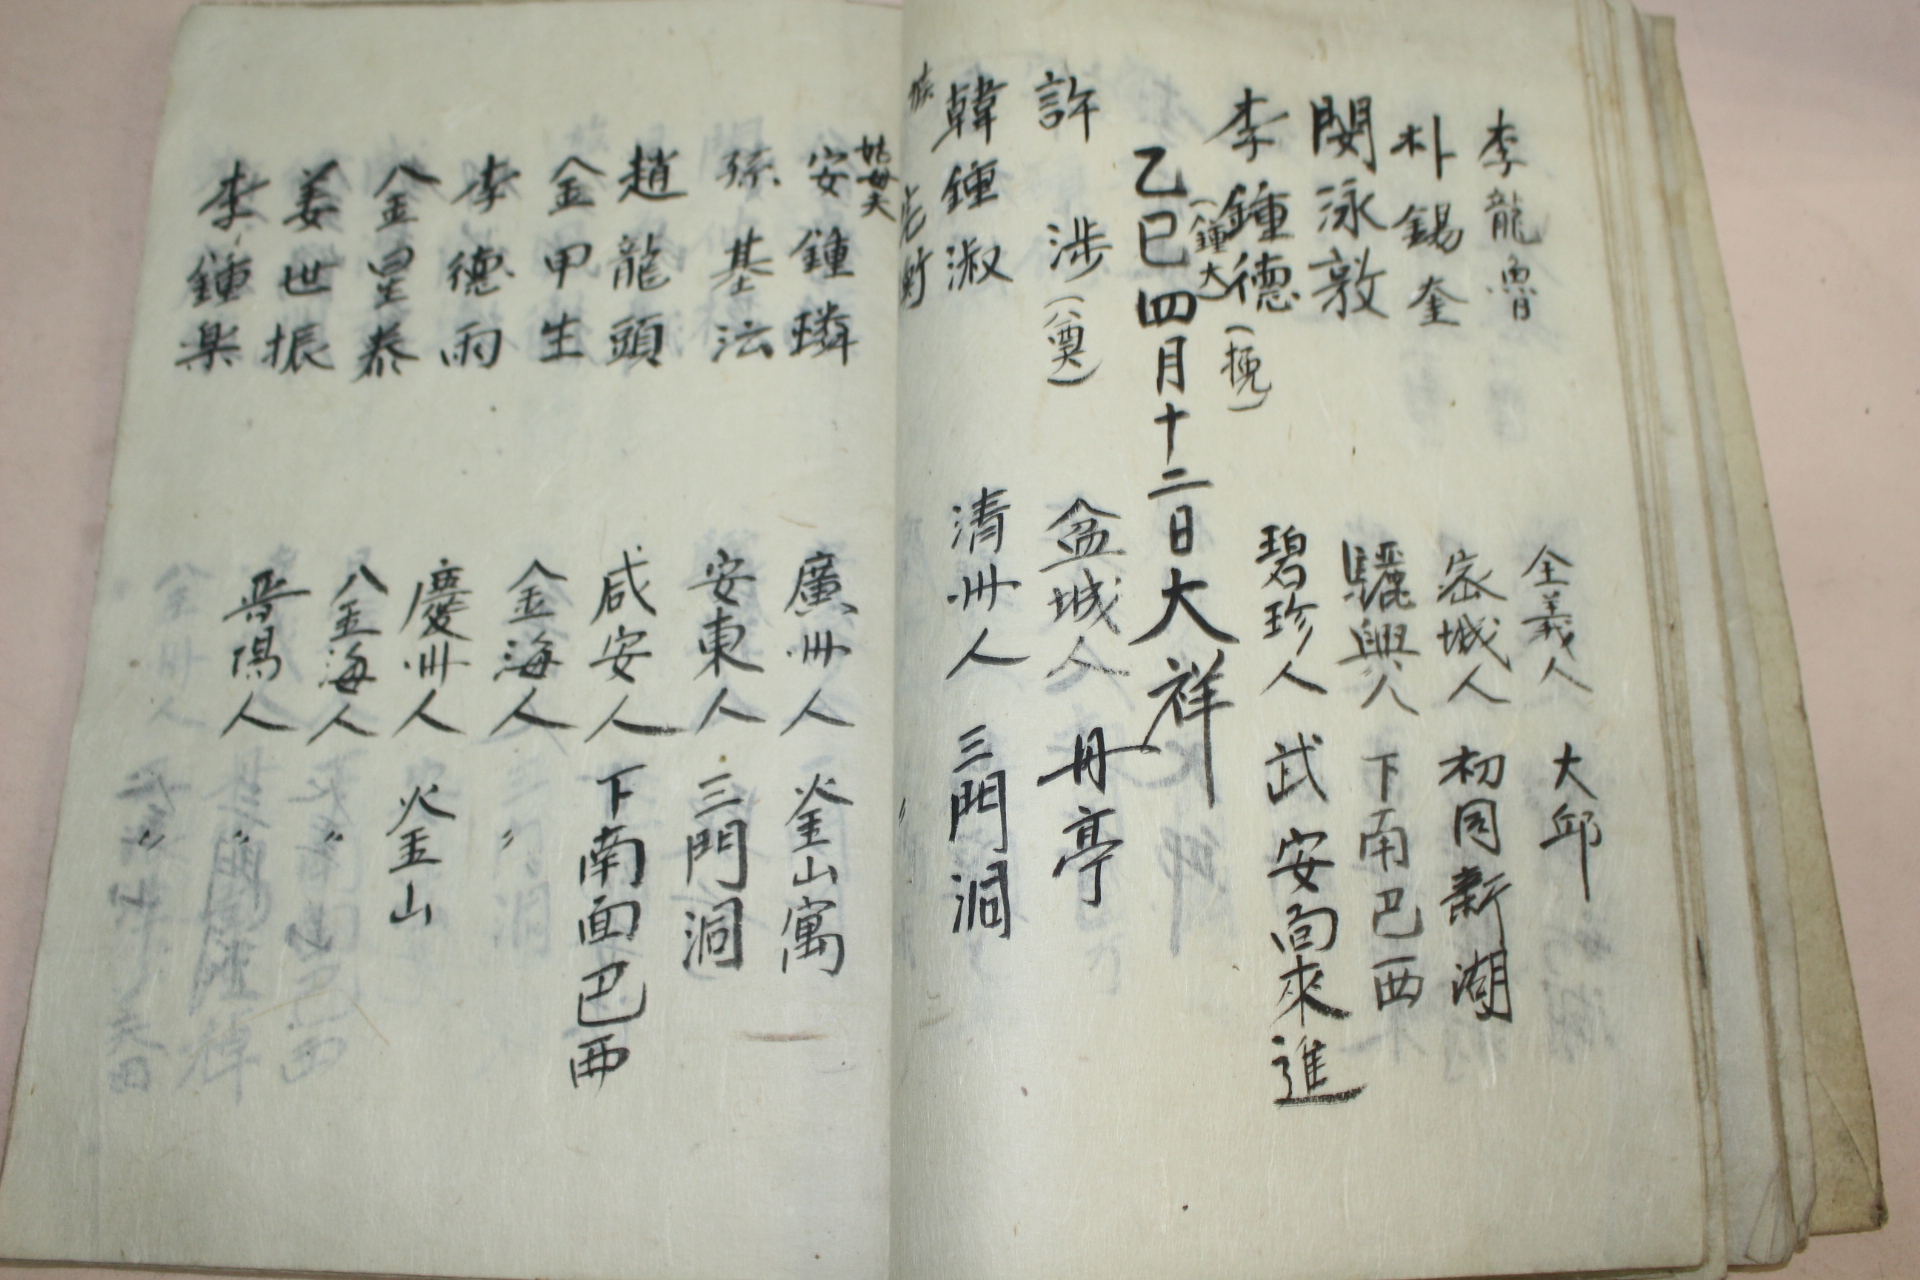 李龍魯 全義人 大邱
朴錫奎 密城人 初同新湖
閔泳敦 驪興人 下南巴西
李鍾德(挽) 碧珍人 武安面來進
(鍾大)
乙巳四月十二日大祥
許 涉(奠) 盆城人 丹亭
韓鍾淑 清州人 三門洞
族 〃
姑母夫
安鍾璘 廣州人 釜山寓
孫基法 安東人 三門洞
趙龍頭 咸安人 下南面巴西
金甲生 金海人 〃
李德雨 慶州人 釜山
金星泰 金海人 〃
姜世振 晋陽人 〃
李鍾楽 〃